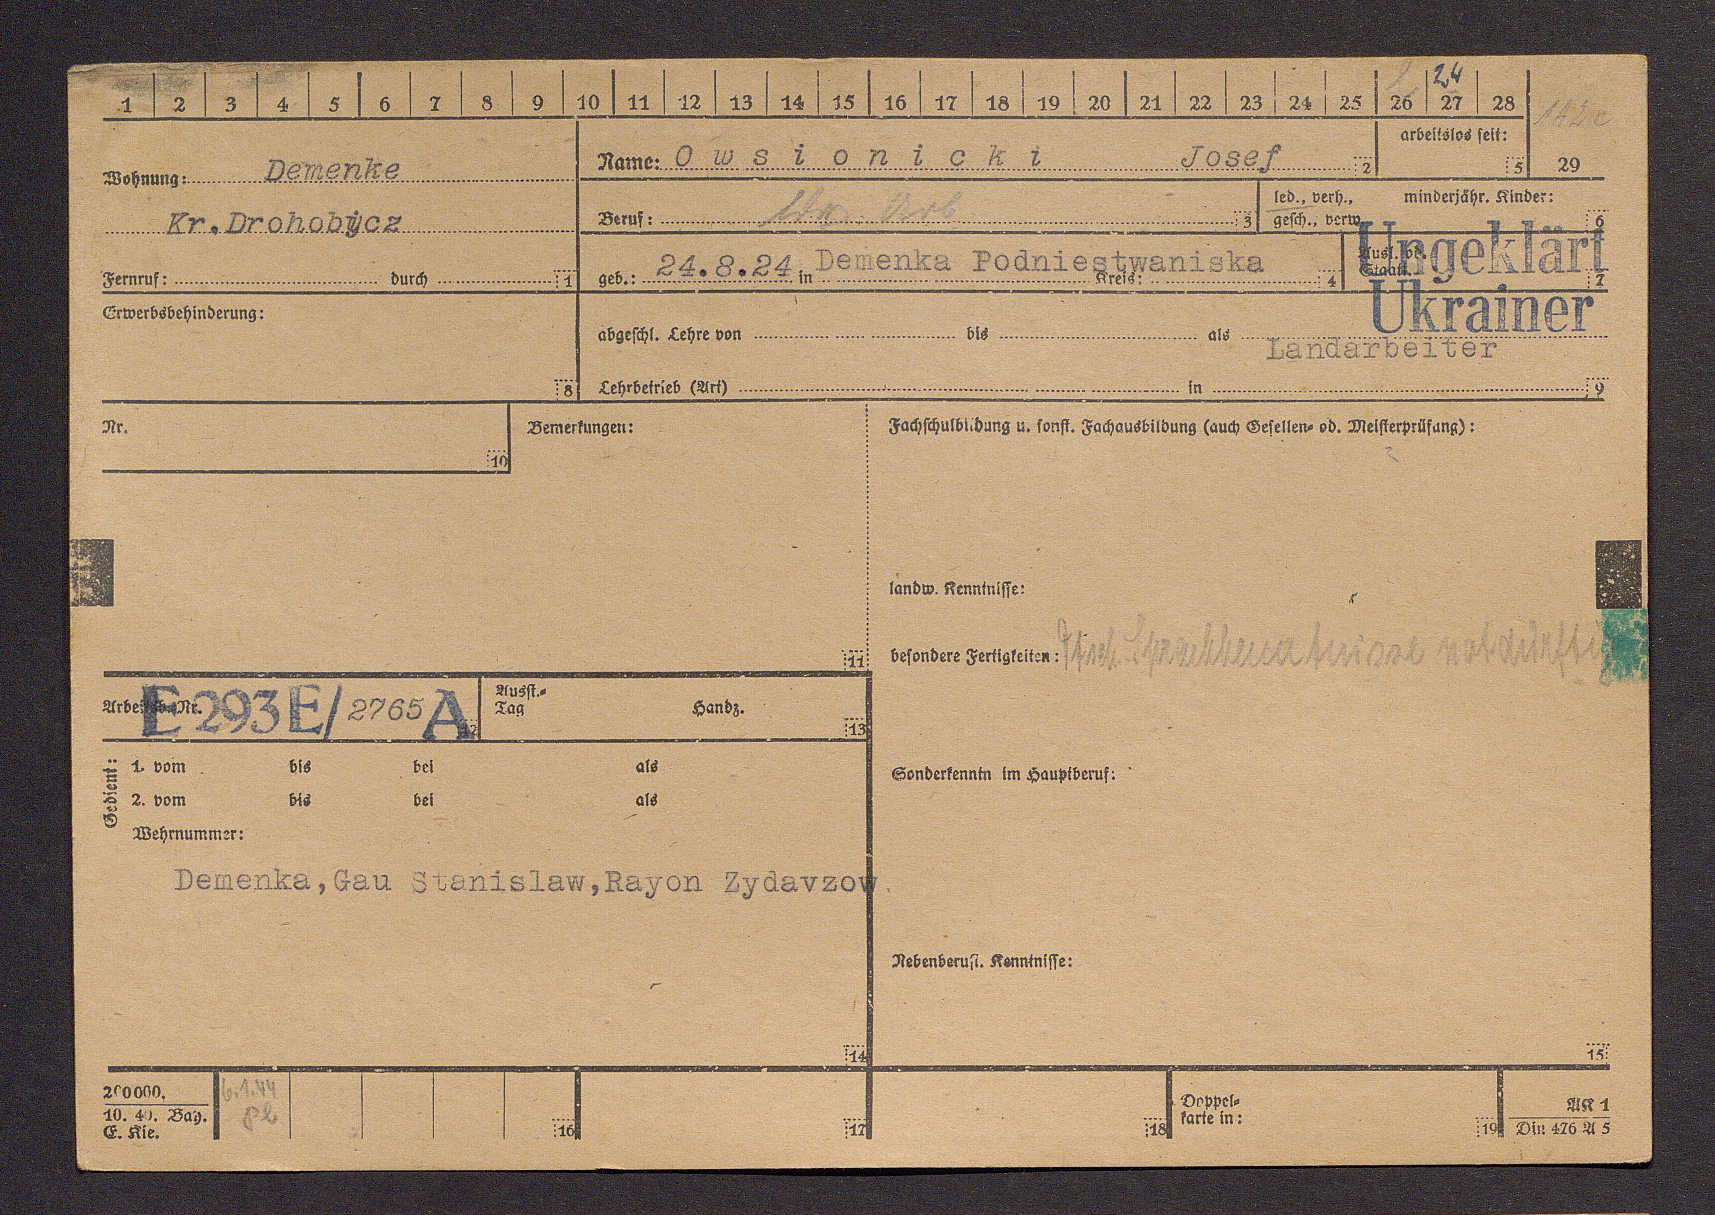 1 2 3 4 5 6 7 8 9 10 11 12 13 14 15 16 17 18 19 20 21 22 23 24 25 26 27 28
24
142 c
Wohnung: Demenke
Kr. Drohobycz
Fernruf: durch 1
Name: Owsionicki Josef 2
arbeitslos seit: 5
29
Beruf: Arb 3
led., verh., gesch., verw.
minderjähr. Kinder: 6
geb.: 24.8.24 in Demenka Podniestwaniska Kreis: 4
Ausl. od. Staatl. 7
Ungeklärt
Ukrainer
Erwerbsbehinderung: 8
abgeschl. Lehre von bis als
Landarbeiter
Lehrbetrieb (Art) in 9
Nr. 10
Bemerkungen: 11
Fachschulbildung u. sonst. Fachausbildung (auch Gesellen- od. Meisterprüfung):
landw. Kenntnisse:
besondere Fertigkeiten: Dtsch. Sprachkenntnisse notdürftig
Arbeitsb.-Nr. E 293 E/ 2765 A 12
Ausst.-Tag Handz. 13
Gedient:
1. vom bis bei als
2. vom bis bei als
Wehrnummer:
Demenka, Gau Stanislaw, Rayon Zydavzow.
14
Sonderkenntn im Hauptberuf:
Nebenberufl. Kenntnisse:
15
200000.
10. 40. Bay.
E. Kie.
6.1.44
16
17
18
Doppel-
karte in: 19
AK 1
Din 476 A 5